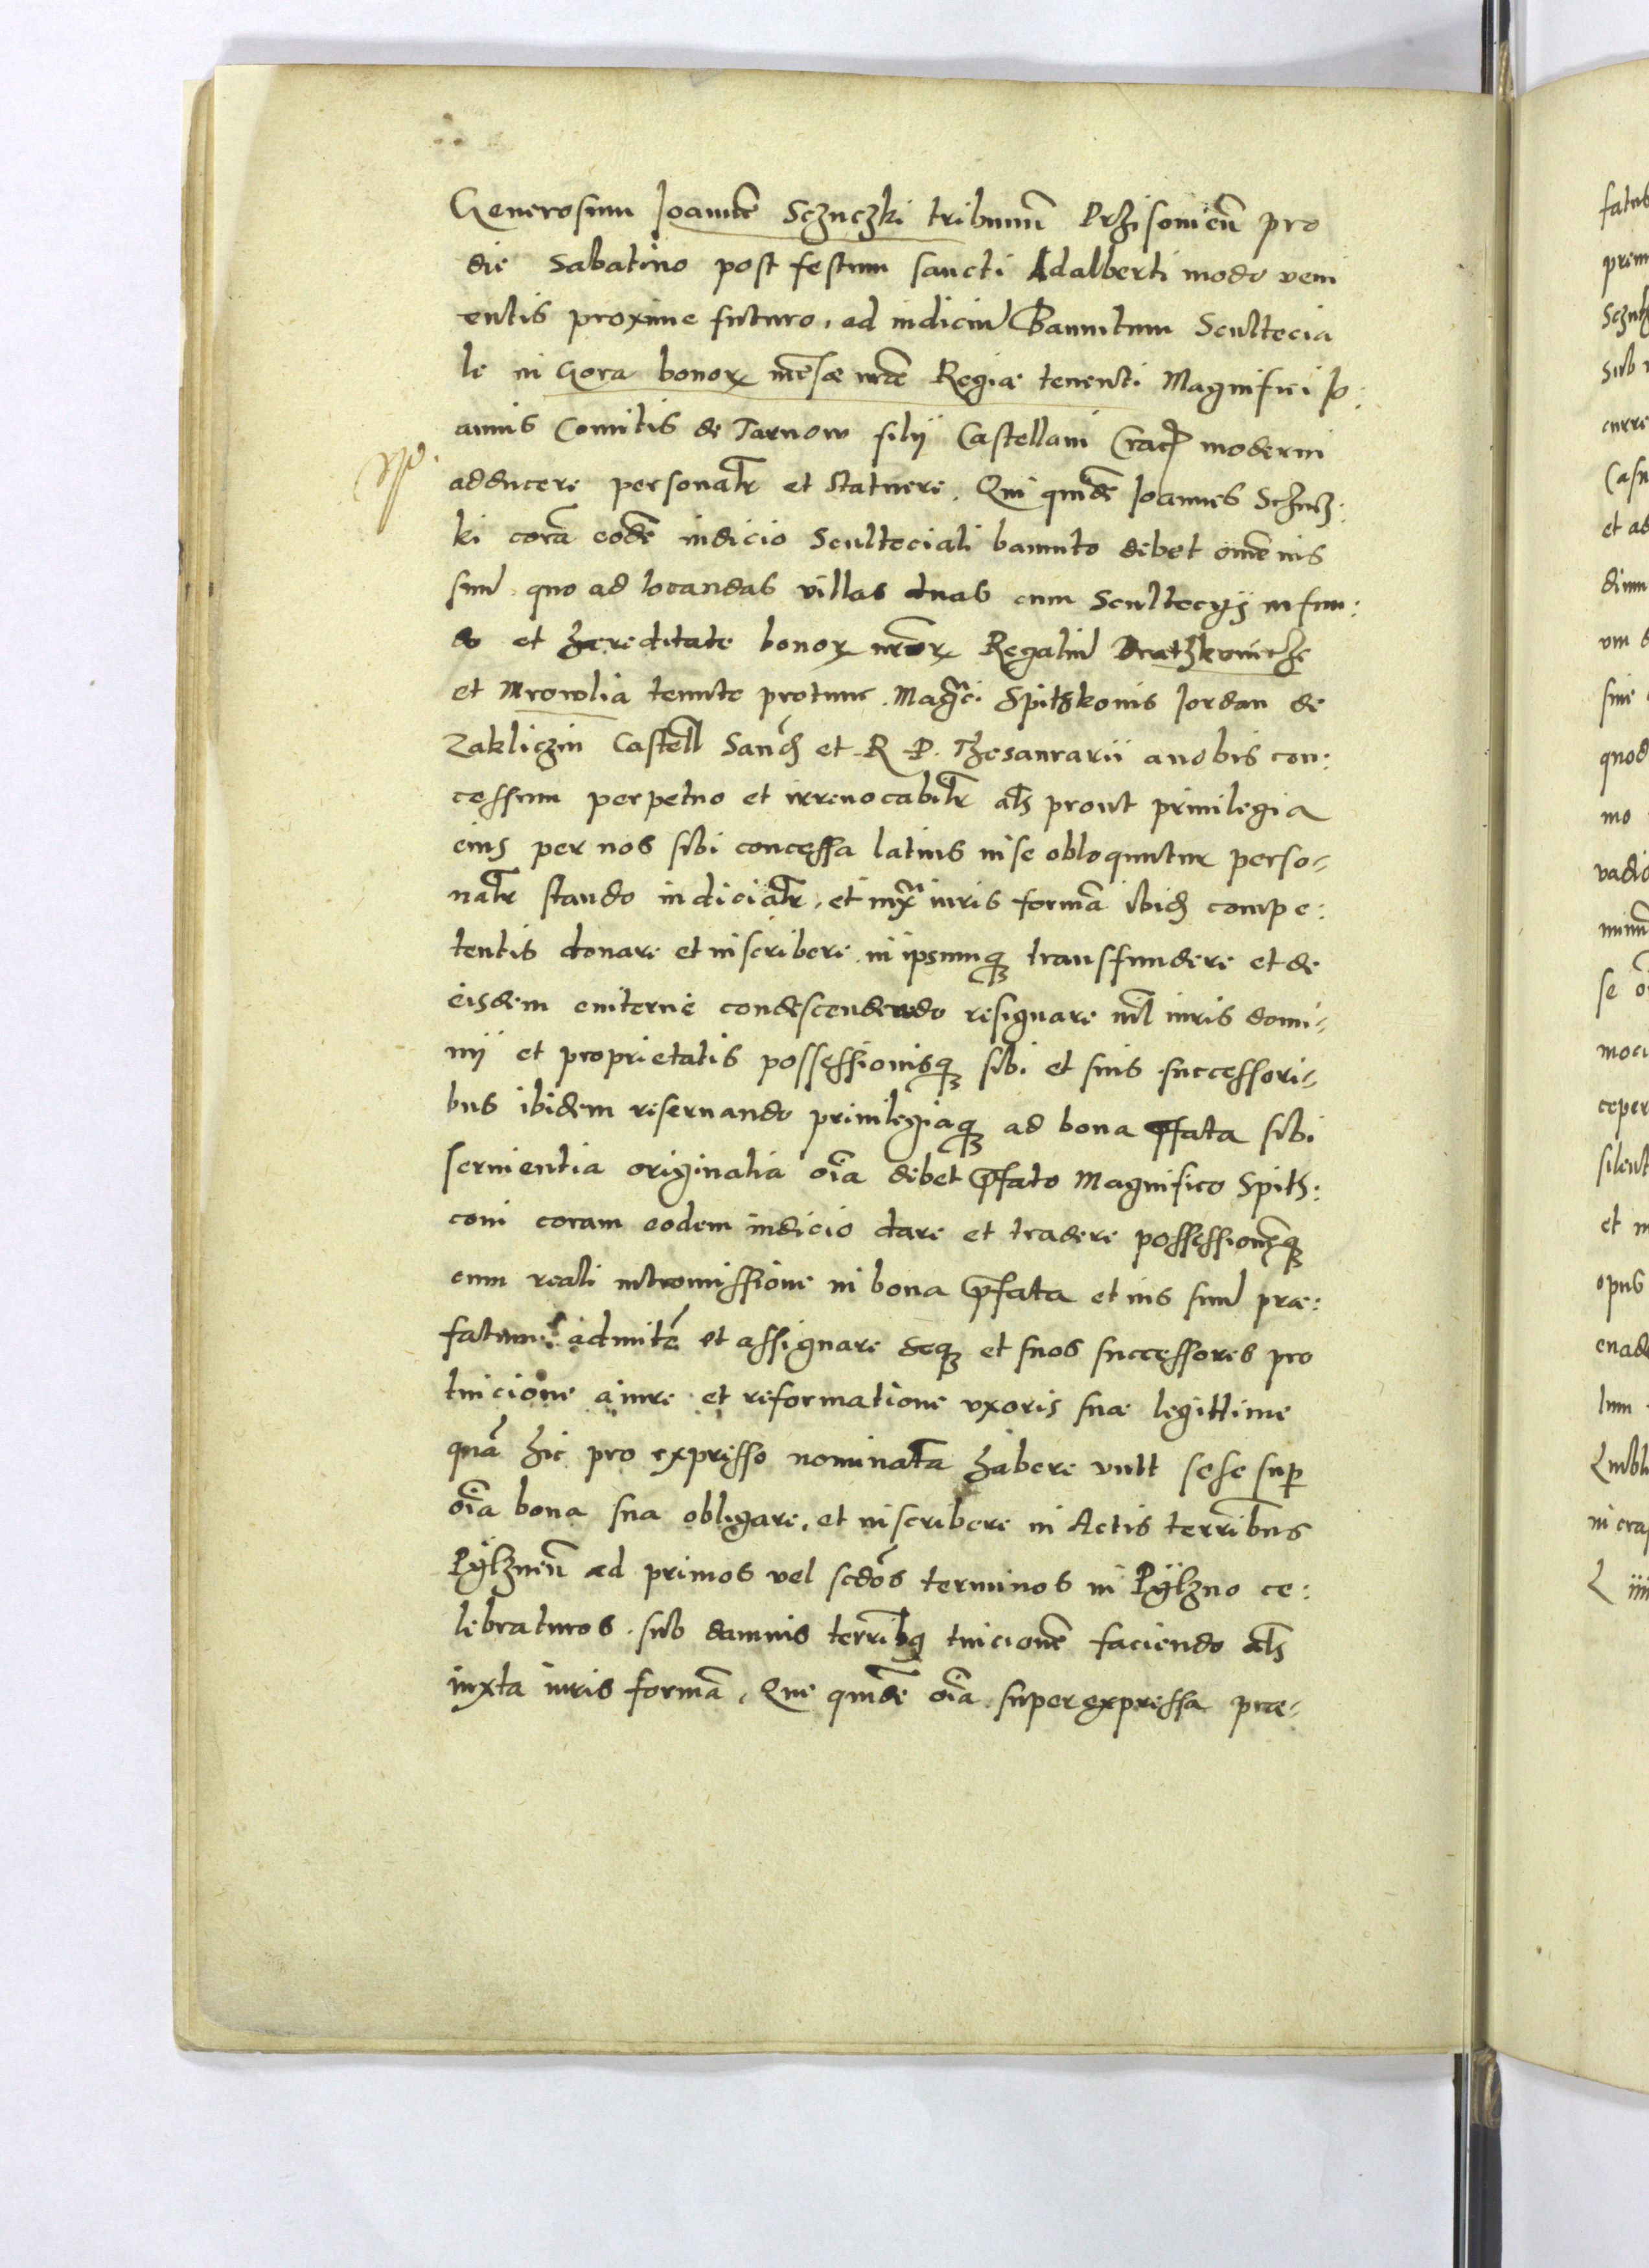 Generosum Joannẽ Sczuczki tribunũ Przisomieñ pro
die Sabatino post festum sancti Adalberti modo veni
entis proxime futuro, ad iudiciũ Bannitum Scultecia
le in Gora bonoꝝ mẽsæ nr̃æ Regiæ tenenti Magnifici Jo:
annis Comitis de Tarnow filij Castellani Crac̃ moderni
adducere personalr̃ et statuere. Qui quidẽ Joannes Schucz:
ki corã eodẽ iudicio Sculteciali bannito debet omñe ius
suũ quo ad locandas villas duas cum Scultecijs in fun:
do et hæreditate bonoꝝ nr̃oꝝ Regaliũ Bratzkowicze
et Mrowlia tenute protunc Magc̃i Spitzkonis Jordan de
Zakliczin Castell̃ Sanđ et R P. Thesaurarii a nobis con:
cessum perpetuo et irreuocabilr̃ als̃ prout priuilegia
eius per nos sibi concessa latius in se obloquuntur perso-
nalr̃ stando iudicialr̃, et iuxᵃ iuris formã ibiđ compe:
tentis donare et inscribere in ipsumqꝫ transfundere et de
eisdem euiterne condescendendo resignare nil̃ iuris domi-
nij et proprietatis possessionisqꝫ sibi et suis successori-
bus ibidem reseruando priuilegiaqꝫ ad bona p̃fata sibi
seruientia originalia oĩa debet p̃fato Magnifico Spitz:
coni coram eodem iudicio dare et tradere possessionẽqꝫ
cum reali intromissione in bona p̃fata et ius suũ præ:
fatum admitẽ et assignare seqꝫ et suos successores pro
tuicione a iure et reformatione vxoris suæ legittime
quã hic pro expresso nominatã habere vult sese sup̃
oĩa bona sua obligare, et inscribere in Actis terrr̃ibus
Pÿlzneñ ad primos vel scdõs terminos in Pÿlzno ce:
lebraturos sub damnis terrr̃ibꝫ tuicionẽ faciendo als̃
iuxta iuris formã, Que quidẽ oĩa superexpressa præ-